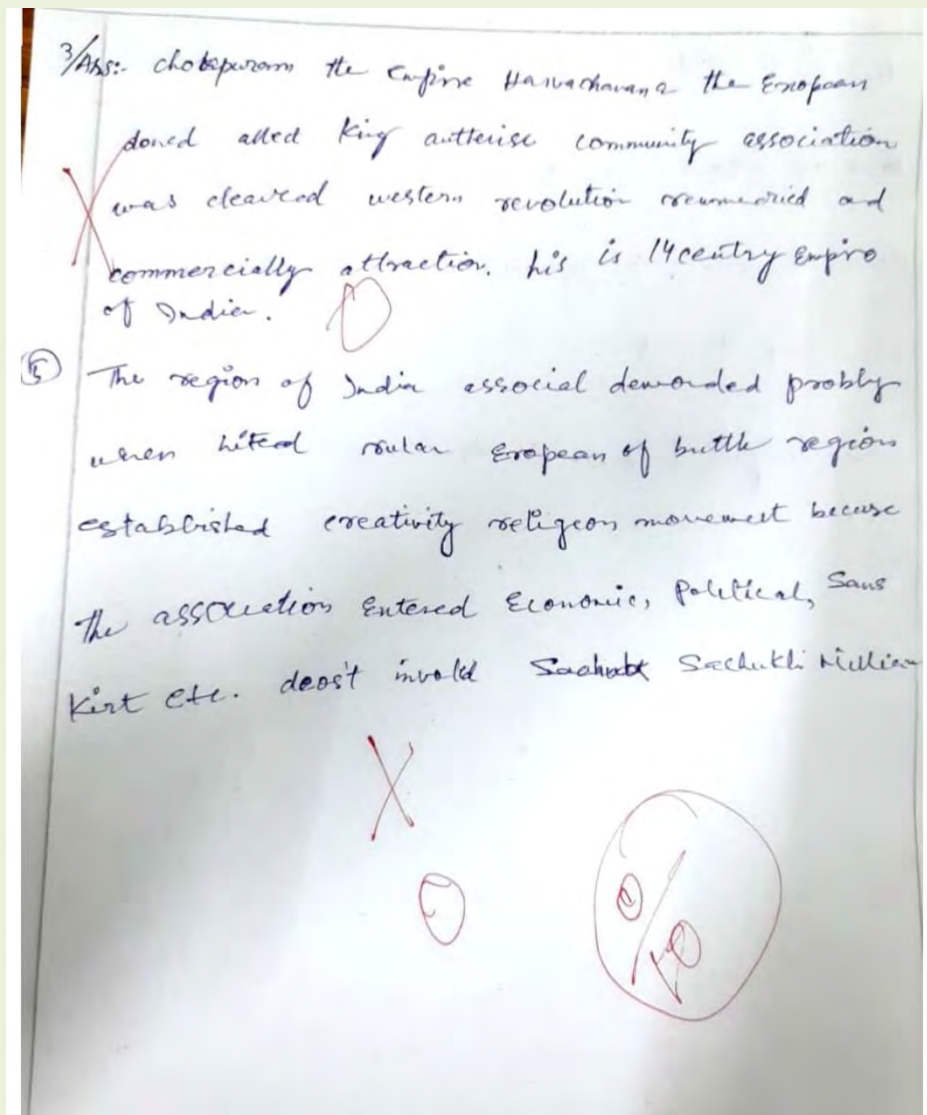 3/Ans:- the Empire the
doned alled King autterise community association
was cleaved western revolution and
commercially attraction. his is 14 centry Empro
of India. 0
5 The region of India associal demonded probly
when hited rular Eropean of buttle region
established creativity religeon movement becuse
the association Entered Economic, Political, Sans
Kirt etc. deost invold
X
0
0/10